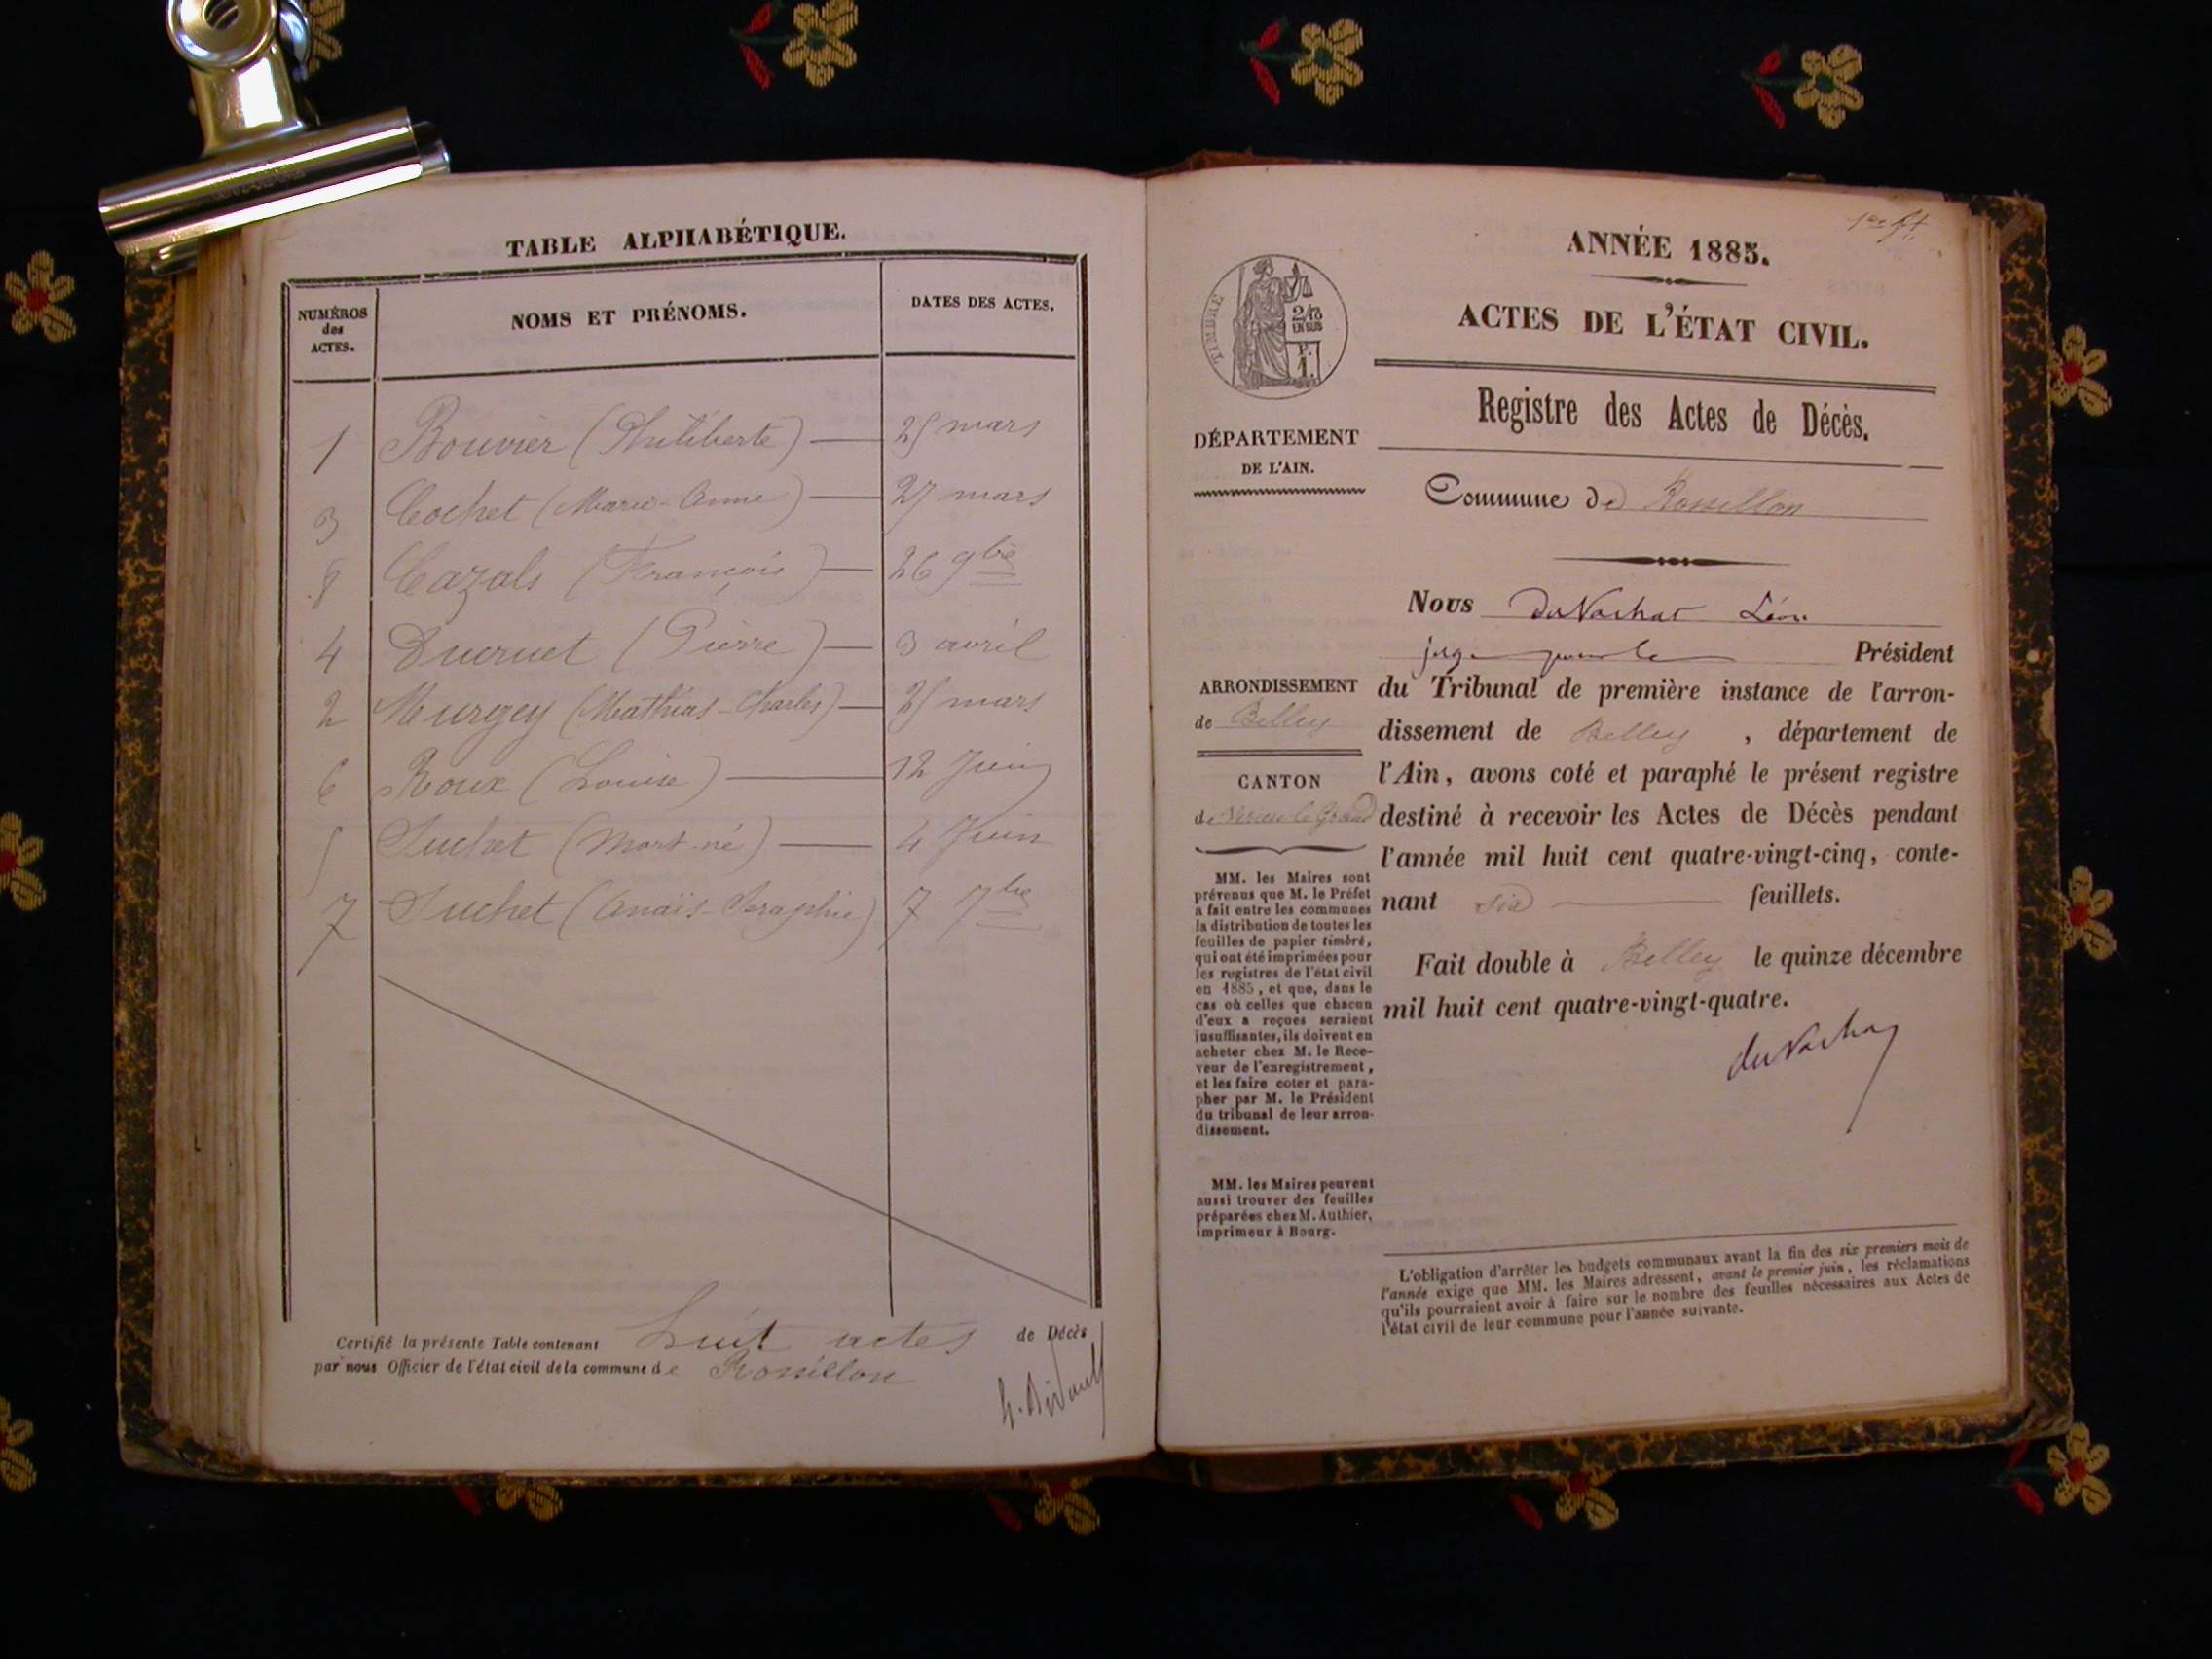 TABLE ALPHABÉTIQUE.
NUMÉROS des ACTES. NOMS ET PRÉNOMS. DATES DES ACTES.
1 Bouvier (Philiberte) 25 mars
3 Cochet (Marie-Anne) 27 mars
8 Cazals (François) 26 9bre
4 Ducruet (Pierre) 3 avril
2 Murgey (Mathias-Charles) 25 mars
6 Roux (Louise) 12 Juin
5 Suchet (Mort-né) 4 Juin
7 Suchet (Anaïs-Séraphie) 7 7bre
Certifié la présente Table contenant huit actes de Décès
par nous Officier de l'état civil de la commune de Rossillon
ANNÉE 1885.
ACTES DE L'ÉTAT CIVIL.
Registre des Actes de Décès.
Commune de Rossillon
TIMBRE
2/10
EN SUS
F.
1.
DÉPARTEMENT
DE L'AIN.
ARRONDISSEMENT
de Belley
CANTON
de Virieu-le-Grand
MM. les Maires sont
prévenus que M. le Préfet
a fait entre les communes
la distribution de toutes les
feuilles de papier timbré,
qui ont été imprimées pour
les registres de l'état civil
en 1885, et que, dans le
cas où celles que chacun
d'eux a reçues seraient
insuffisantes, ils doivent en
acheter chez M. le Rece-
veur de l'enregistrement,
et les faire coter et para-
pher par M. le Président
du tribunal de leur arron-
dissement.
MM. les Maires peuvent
aussi trouver des feuilles
préparées chez M. Authier,
imprimeur à Bourg.
Nous Du Nachat Léon
juge pour le Président
du Tribunal de première instance de l'arron-
dissement de Belley, département de
l'Ain, avons coté et paraphé le présent registre
destiné à recevoir les Actes de Décès pendant
l'année mil huit cent quatre-vingt-cinq, conte-
nant six feuillets.
Fait double à Belley le quinze décembre
mil huit cent quatre-vingt-quatre.
L'obligation d'arrêter les budgets communaux avant la fin des six premiers mois de
l'année exige que MM. les Maires adressent, avant le premier juin, les réclamations
qu'ils pourraient avoir à faire sur le nombre des feuilles nécessaires aux Actes de
l'état civil de leur commune pour l'année suivante.